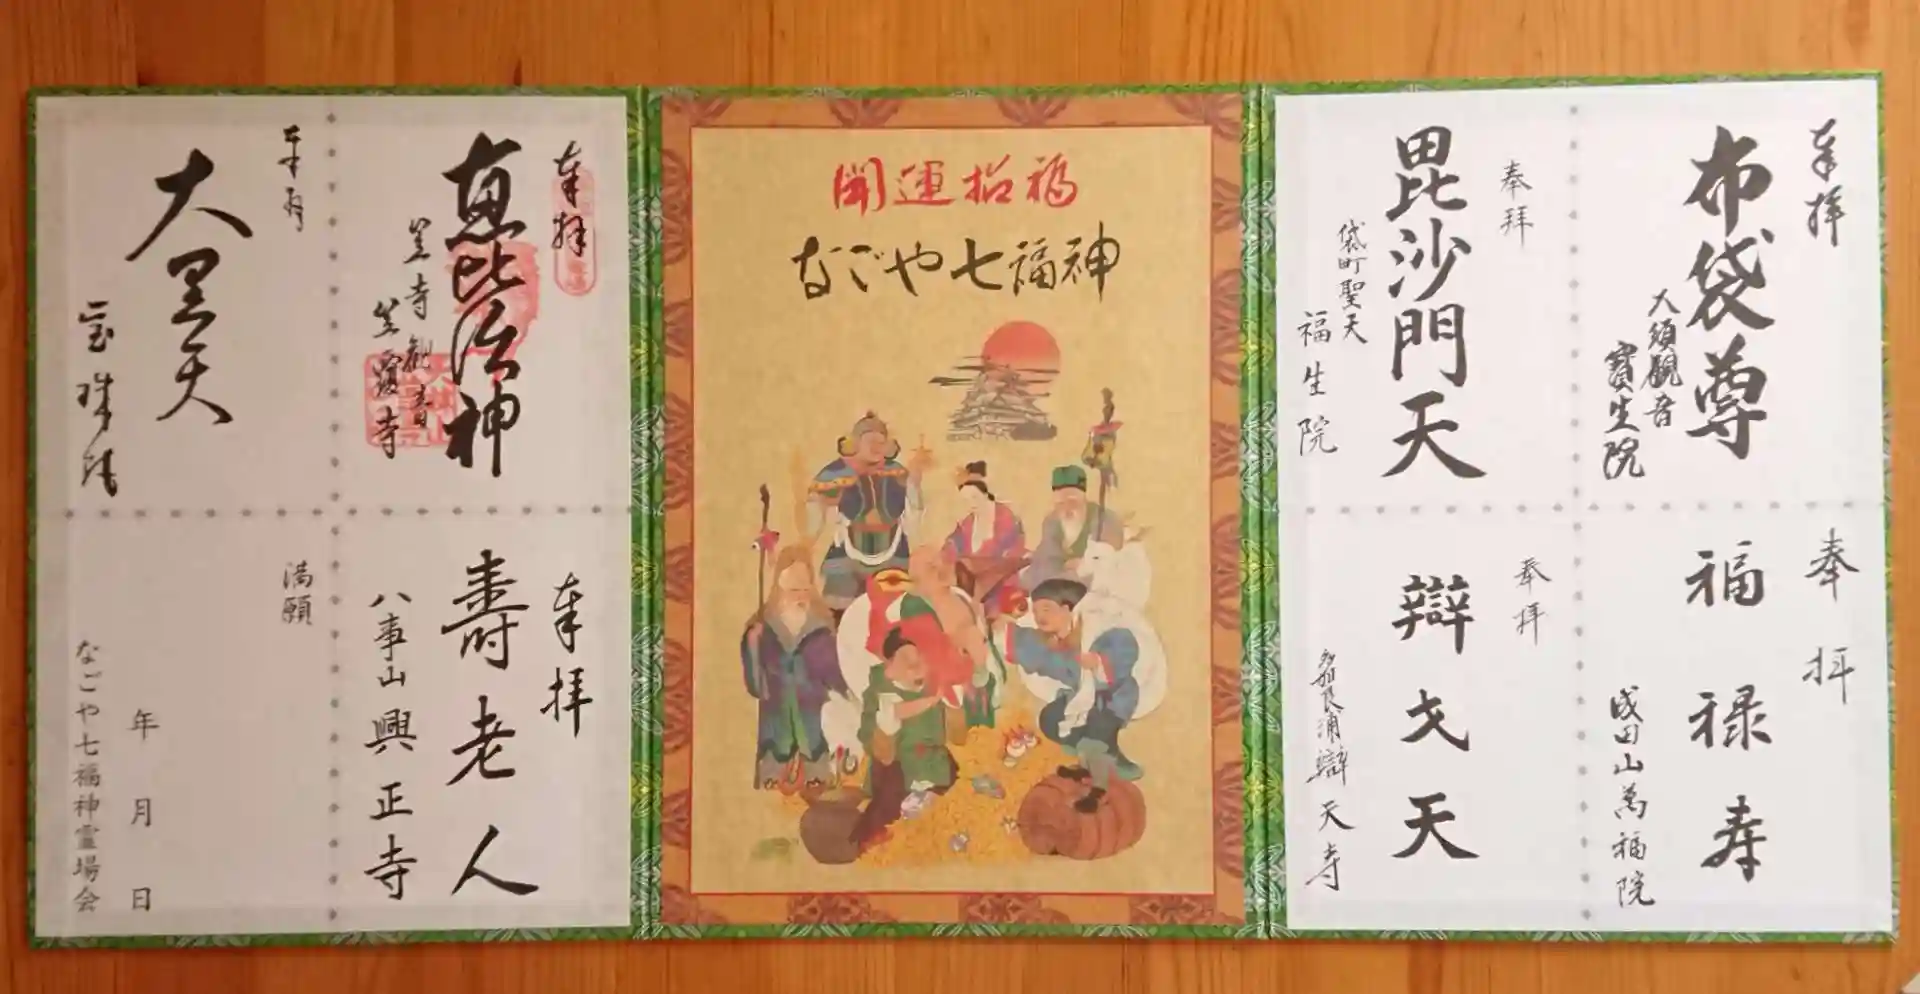 開運招福
なごや七福神
奉拝
布袋尊
大須観音
寳生院
奉拜
毘沙門天
袋町聖天
福生院
奉拝
福禄寿
成田山萬福院
奉拝
辯才天
辯天寺
奉拝
恵比須神
笠寺観音
笠覆寺
奉拝
大黒天
宝珠院
奉拝
壽老人
八事山興正寺
満願
年月日
なごや七福神霊場会